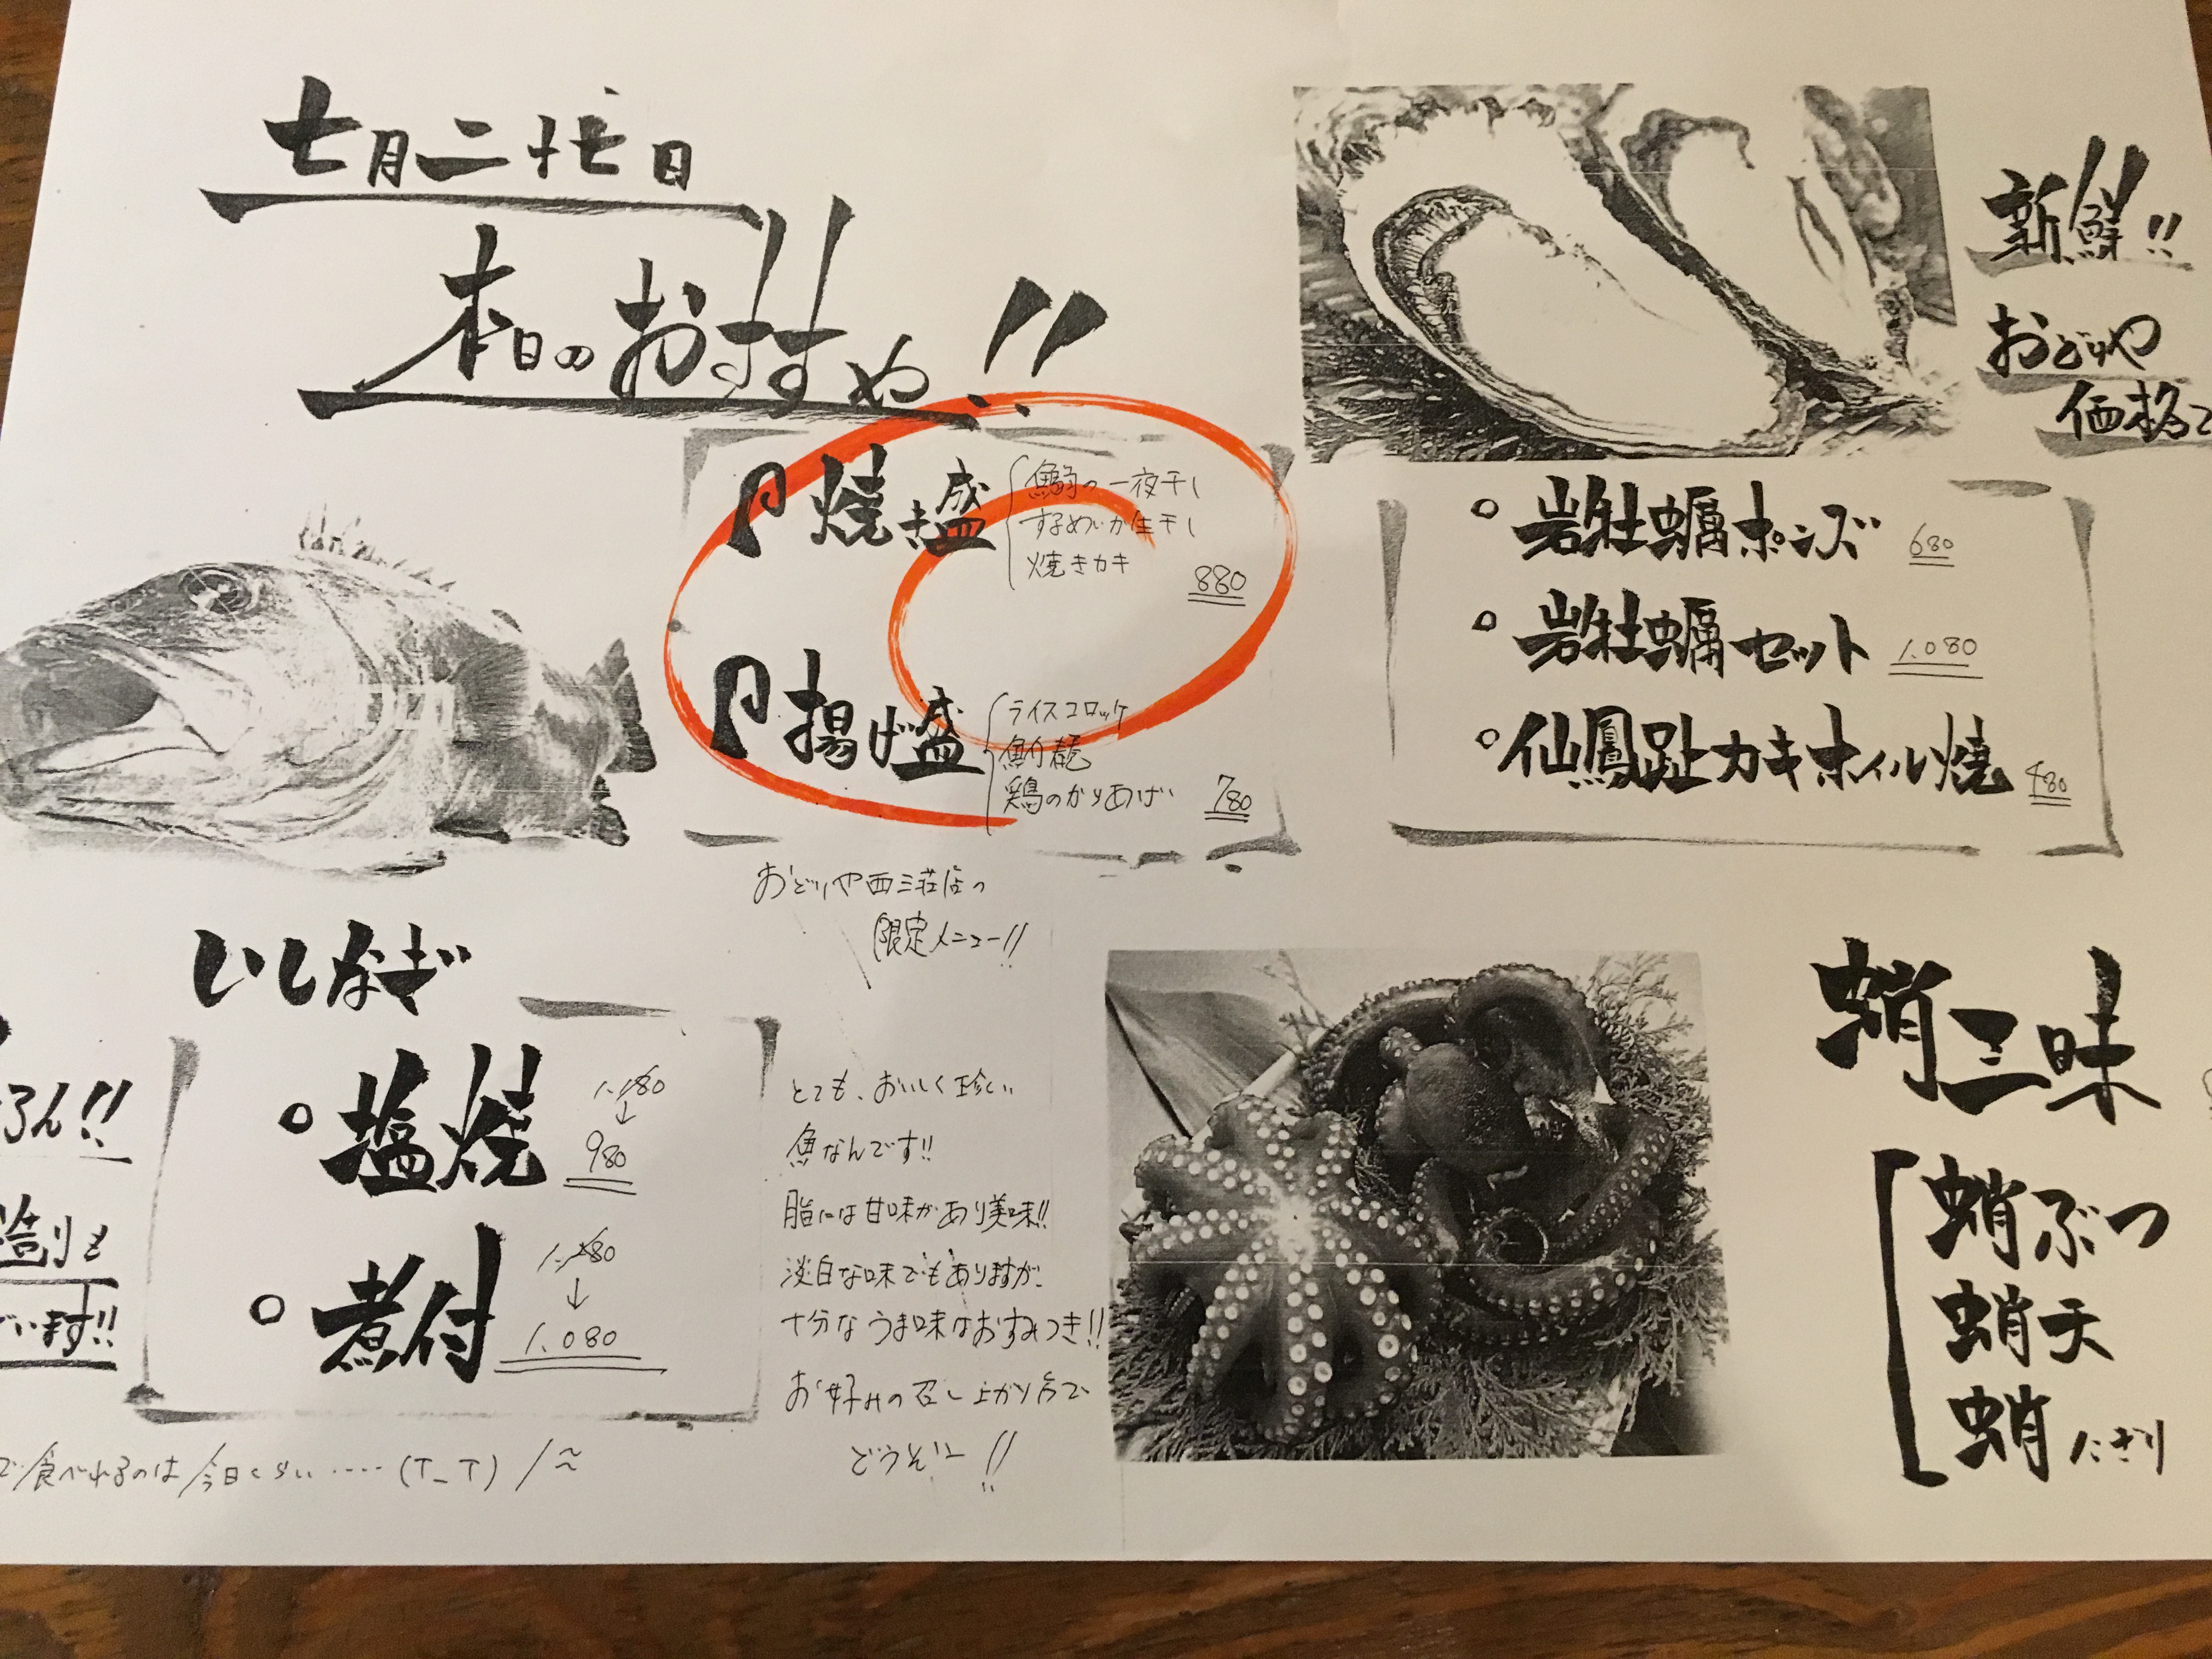 七月二十七日
本日のおすすめ!!
焼き盛
の一夜干し
するめいか生干し
焼きカキ
880
揚げ盛
ライスコロッケ
鶏のからあげ
780
おどりや西三荘店の
限定メニュー!!
新鮮!!
おどりや
価格で
岩牡蠣ポンズ 680
岩牡蠣セット 1.080
仙鳳趾カキホイル焼 480
いしなぎ
塩焼 1.180
↓
980
煮付 1.280
↓
1.080
ろん!!
造りも
います!!
で食べれるのは今日くらい‥‥(T_T)/~~
とても、おいしく珍しい
魚なんです!!
脂には甘味があり美味!!
淡白な味でもありますが、
十分なうま味はおすみつき!!
お好みの召し上がり方で
どうぞー!!
蛸三味
蛸ぶつ
蛸天
蛸にぎり